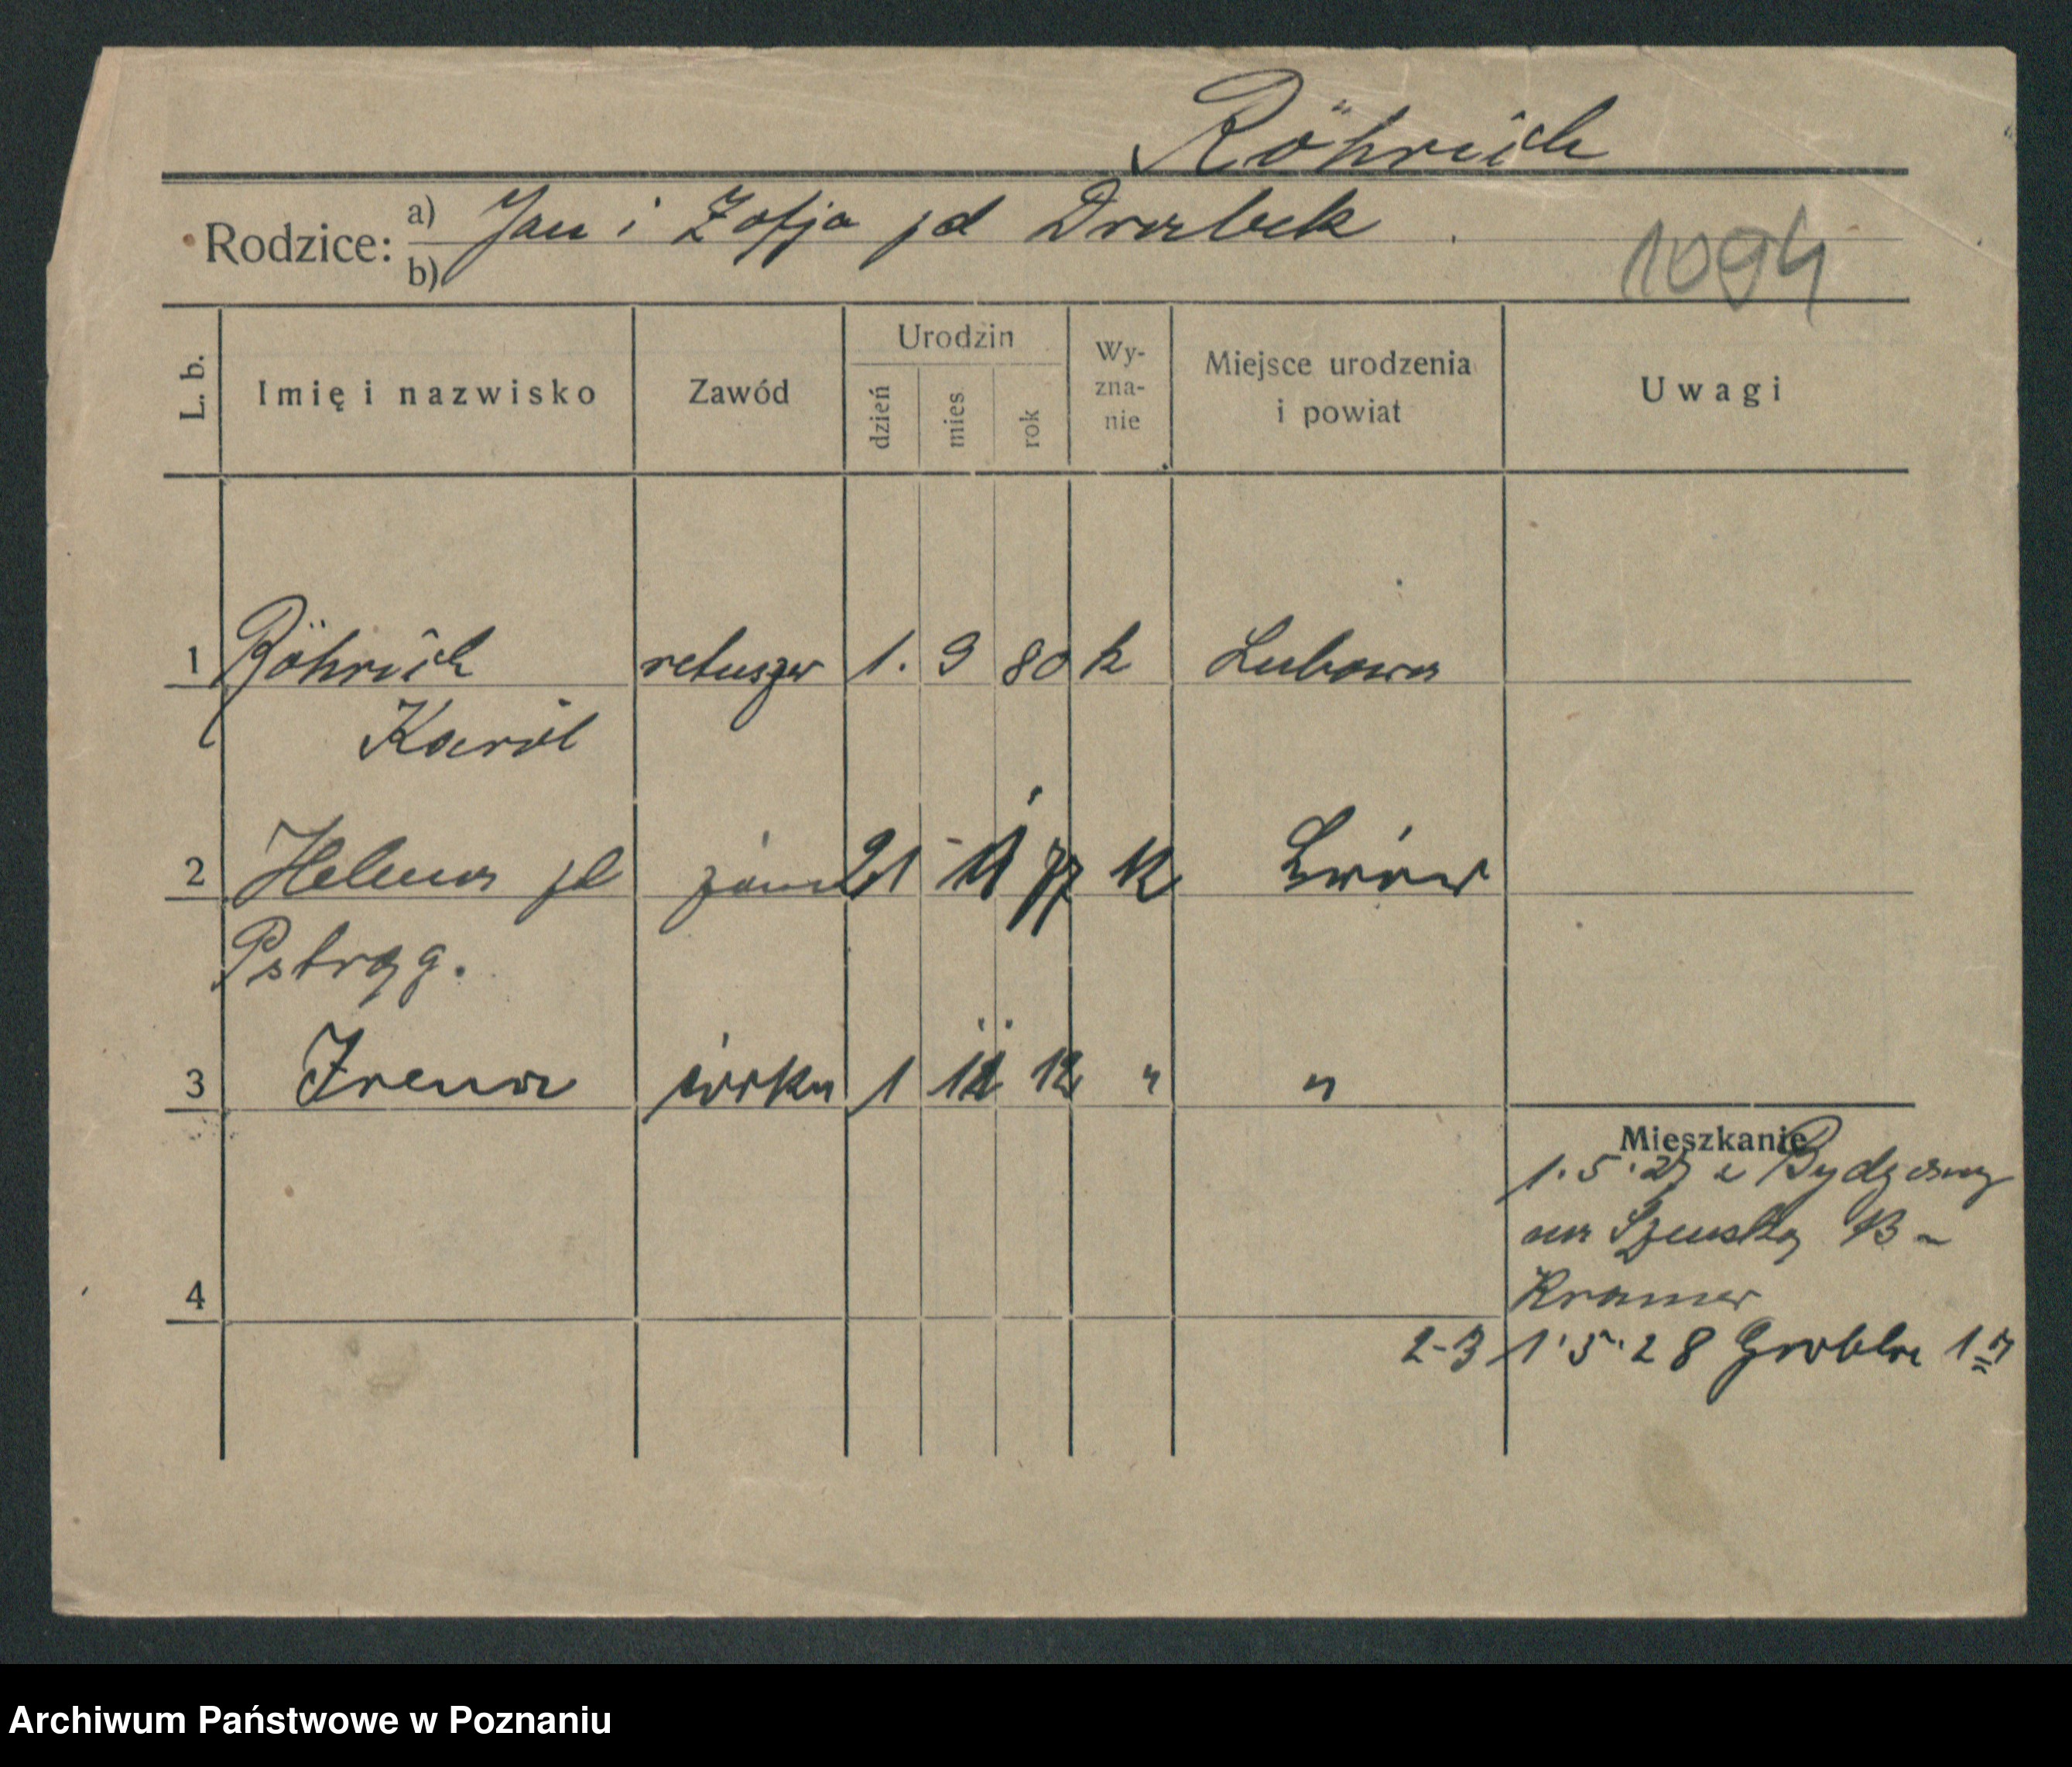 Röhrich
Rodzice: a) Jan i Zofja jd Drabek
b)
1094
L. b.
Imię i nazwisko
Zawód
Urodzin
dzień
mies.
rok
Wy-
zna-
nie
Miejsce urodzenia
i powiat
Uwagi
1 Röhrich retuszer 1. 9 80 k
Karol
2 Helena jd 21 77 k Lwów
Pstrąg.
3 Irena córka 1 12 " "
Mieszkanie
1.5.27 z Bydgoszczy
13
Kramer
4
2-3 1.5.28 Grobla 1
Archiwum Państwowe w Poznaniu